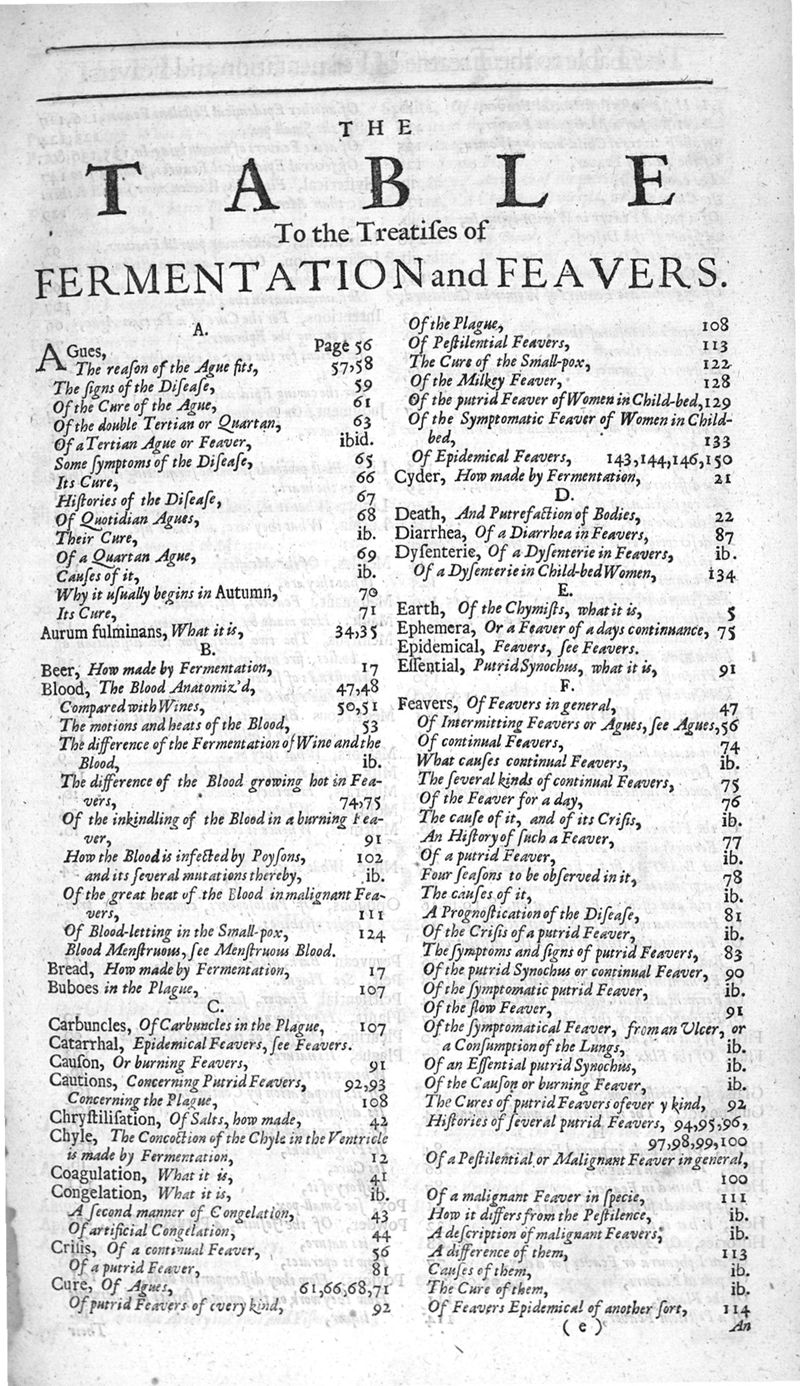 THE
TABLE
To the Treatiſes of
FERMENTATION and FEAVERS.
A.
AGues, Page 56
The reaſon of the Ague fits, 57,58
The ſigns of the Diſeaſe, 59
Of the Cure of the Ague, 61
Of the double Tertian or Quartan, 63
Of a Tertian Ague or Feaver, ibid.
Some ſymptoms of the Diſeaſe, 65
Its Cure, 66
Hiſtories of the Diſeaſe, 67
Of Quotidian Agues, 68
Their Cure, ib.
Of a Quartan Ague, 69
Cauſes of it, ib.
Why it uſually begins in Autumn, 70
Its Cure, 71
Aurum fulminans, What it is, 34,35
B.
Beer, How made by Fermentation, 17
Blood, The Blood Anatomiz'd, 47,48
Compared with Wines, 50,51
The motions and heats of the Blood, 53
The difference of the Fermentation of Wine and the
Blood, ib.
The difference of the Blood growing hot in Fea-
vers, 74,75
Of the inkindling of the Blood in a burning Fea-
ver, 91
How the Blood is infected by Poyſons, 102
and its ſeveral mutations thereby, ib.
Of the great heat of the Blood in malignant Fea-
vers, 111
Of Blood-letting in the Small-pox, 124
Blood Menſtruous, ſee Menſtruous Blood.
Bread, How made by Fermentation, 17
Buboes in the Plague, 107
C.
Carbuncles, Of Carbuncles in the Plague, 107
Catarrhal, Epidemical Feavers, ſee Feavers.
Cauſon, Or burning Feavers, 91
Cautions, Concerning Putrid Feavers, 92,93
Concerning the Plague, 108
Chryſtiliſation, Of Salts, how made, 42
Chyle, The Concoction of the Chyle in the Ventricle
is made by Fermentation, 12
Coagulation, What it is, 41
Congelation, What it is, ib.
A ſecond manner of Congelation, 43
Of artificial Congelation, 44
Criſis, Of a continual Feaver, 56
Of a putrid Feaver, 81
Cure, Of Agues, 61,66,68,71
Of putrid Feavers of every kind, 92
Of the Plague, 108
Of Peſtilential Feavers, 113
The Cure of the Small-pox, 122
Of the Milkey Feaver, 128
Of the putrid Feaver of Women in Child-bed, 129
Of the Symptomatic Feaver of Women in Child-
bed, 133
Of Epidemical Feavers, 143,144,146,150
Cyder, How made by Fermentation, 21
D.
Death, And Putrefaction of Bodies, 22
Diarrhea, Of a Diarrhea in Feavers, 87
Dyſenterie, Of a Dyſenterie in Feavers, ib.
Of a Dyſenterie in Child-bed Women, 134
E.
Earth, Of the Chymiſts, what it is, 5
Ephemera, Or a Feaver of a days continuance, 75
Epidemical, Feavers, ſee Feavers.
Eſſential, Putrid Synochus, what it is, 91
F.
Feavers, Of Feavers in general, 47
Of Intermitting Feavers or Agues, ſee Agues, 56
Of continual Feavers, 74
What cauſes continual Feavers, ib.
The ſeveral kinds of continual Feavers, 75
Of the Feaver for a day, 76
The cauſe of it, and of its Criſis, ib.
An Hiſtory of ſuch a Feaver, 77
Of a putrid Feaver, ib.
Four ſeaſons to be obſerved in it, 78
The cauſes of it, ib.
A Prognoſtication of the Diſeaſe, 81
Of the Criſis of a putrid Feaver, ib.
The ſymptoms and ſigns of putrid Feavers, 83
Of the putrid Synochus or continual Feaver, 90
Of the ſymptomatic putrid Feaver, ib.
Of the ſlow Feaver, 91
Of the ſymptomatical Feaver, from an Ulcer, or
a Conſumption of the Lungs, ib.
Of an Eſſential putrid Synochus, ib.
Of the Cauſon or burning Feaver, ib.
The Cures of putrid Feavers of ever y kind, 92
Hiſtories of ſeveral putrid Feavers, 94,95,96,
97,98,99,100
Of a Peſtilential or Malignant Feaver in general,
100
Of a malignant Feaver in ſpecie, 111
How it differs from the Peſtilence, ib.
A deſcription of malignant Feavers, ib.
A difference of them, 113
Cauſes of them, ib.
The Cure of them, ib.
Of Feavers Epidemical of another ſort, 114
(e) An